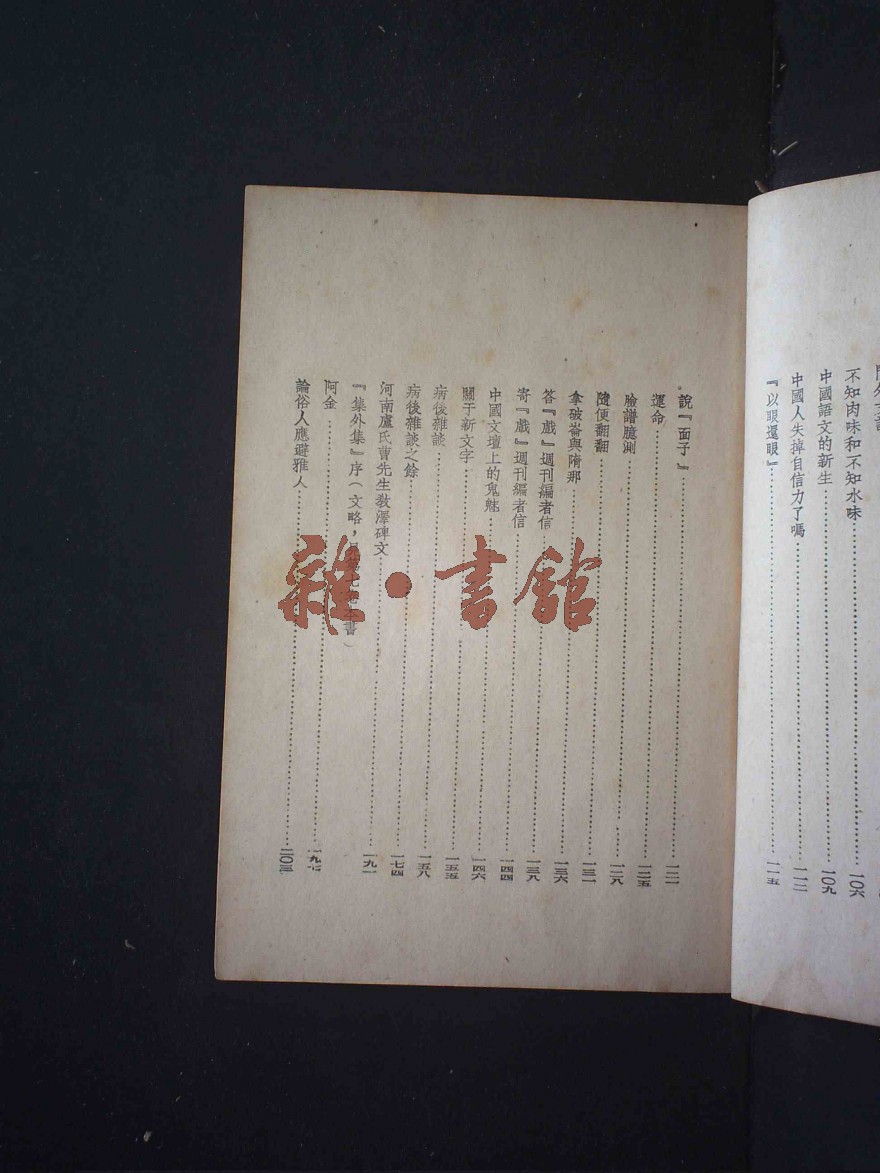 不知肉味和不知水味……一〇六
中國語文的新生……一〇九
中國人失掉自信力了嗎……一一二
『以眼還眼』……一一五
說『面子』……一二一
運命……一二五
臉譜臆測……一二八
隨便翻翻……一三一
拿破崙與隋那……一三六
答『戲』週刊編者信……一三八
寄『戲』週刊編者信……一四四
中國文壇上的鬼魅……一四六
關于新文字……一五五
病後雜談……一五八
病後雜談之餘……一七四
河南盧氏曹先生教澤碑文……一九一
『集外集』序（文略，書）
阿金……一九七
論俗人應避雅人……二〇三
雜·書館